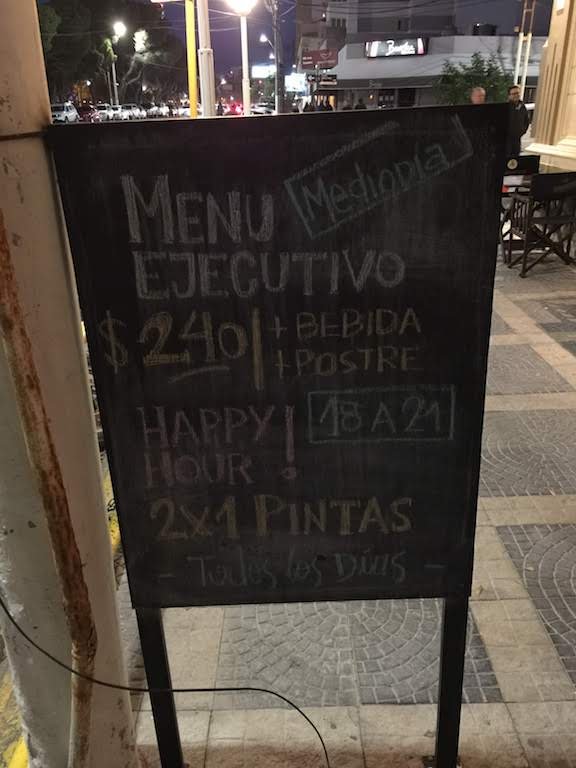 MENU
Mediodía
EJECUTIVO
$240 + BEBIDA
+ POSTRE
HAPPY HOUR!
18 A 21
2x1 PINTAS
- Todos los Días -